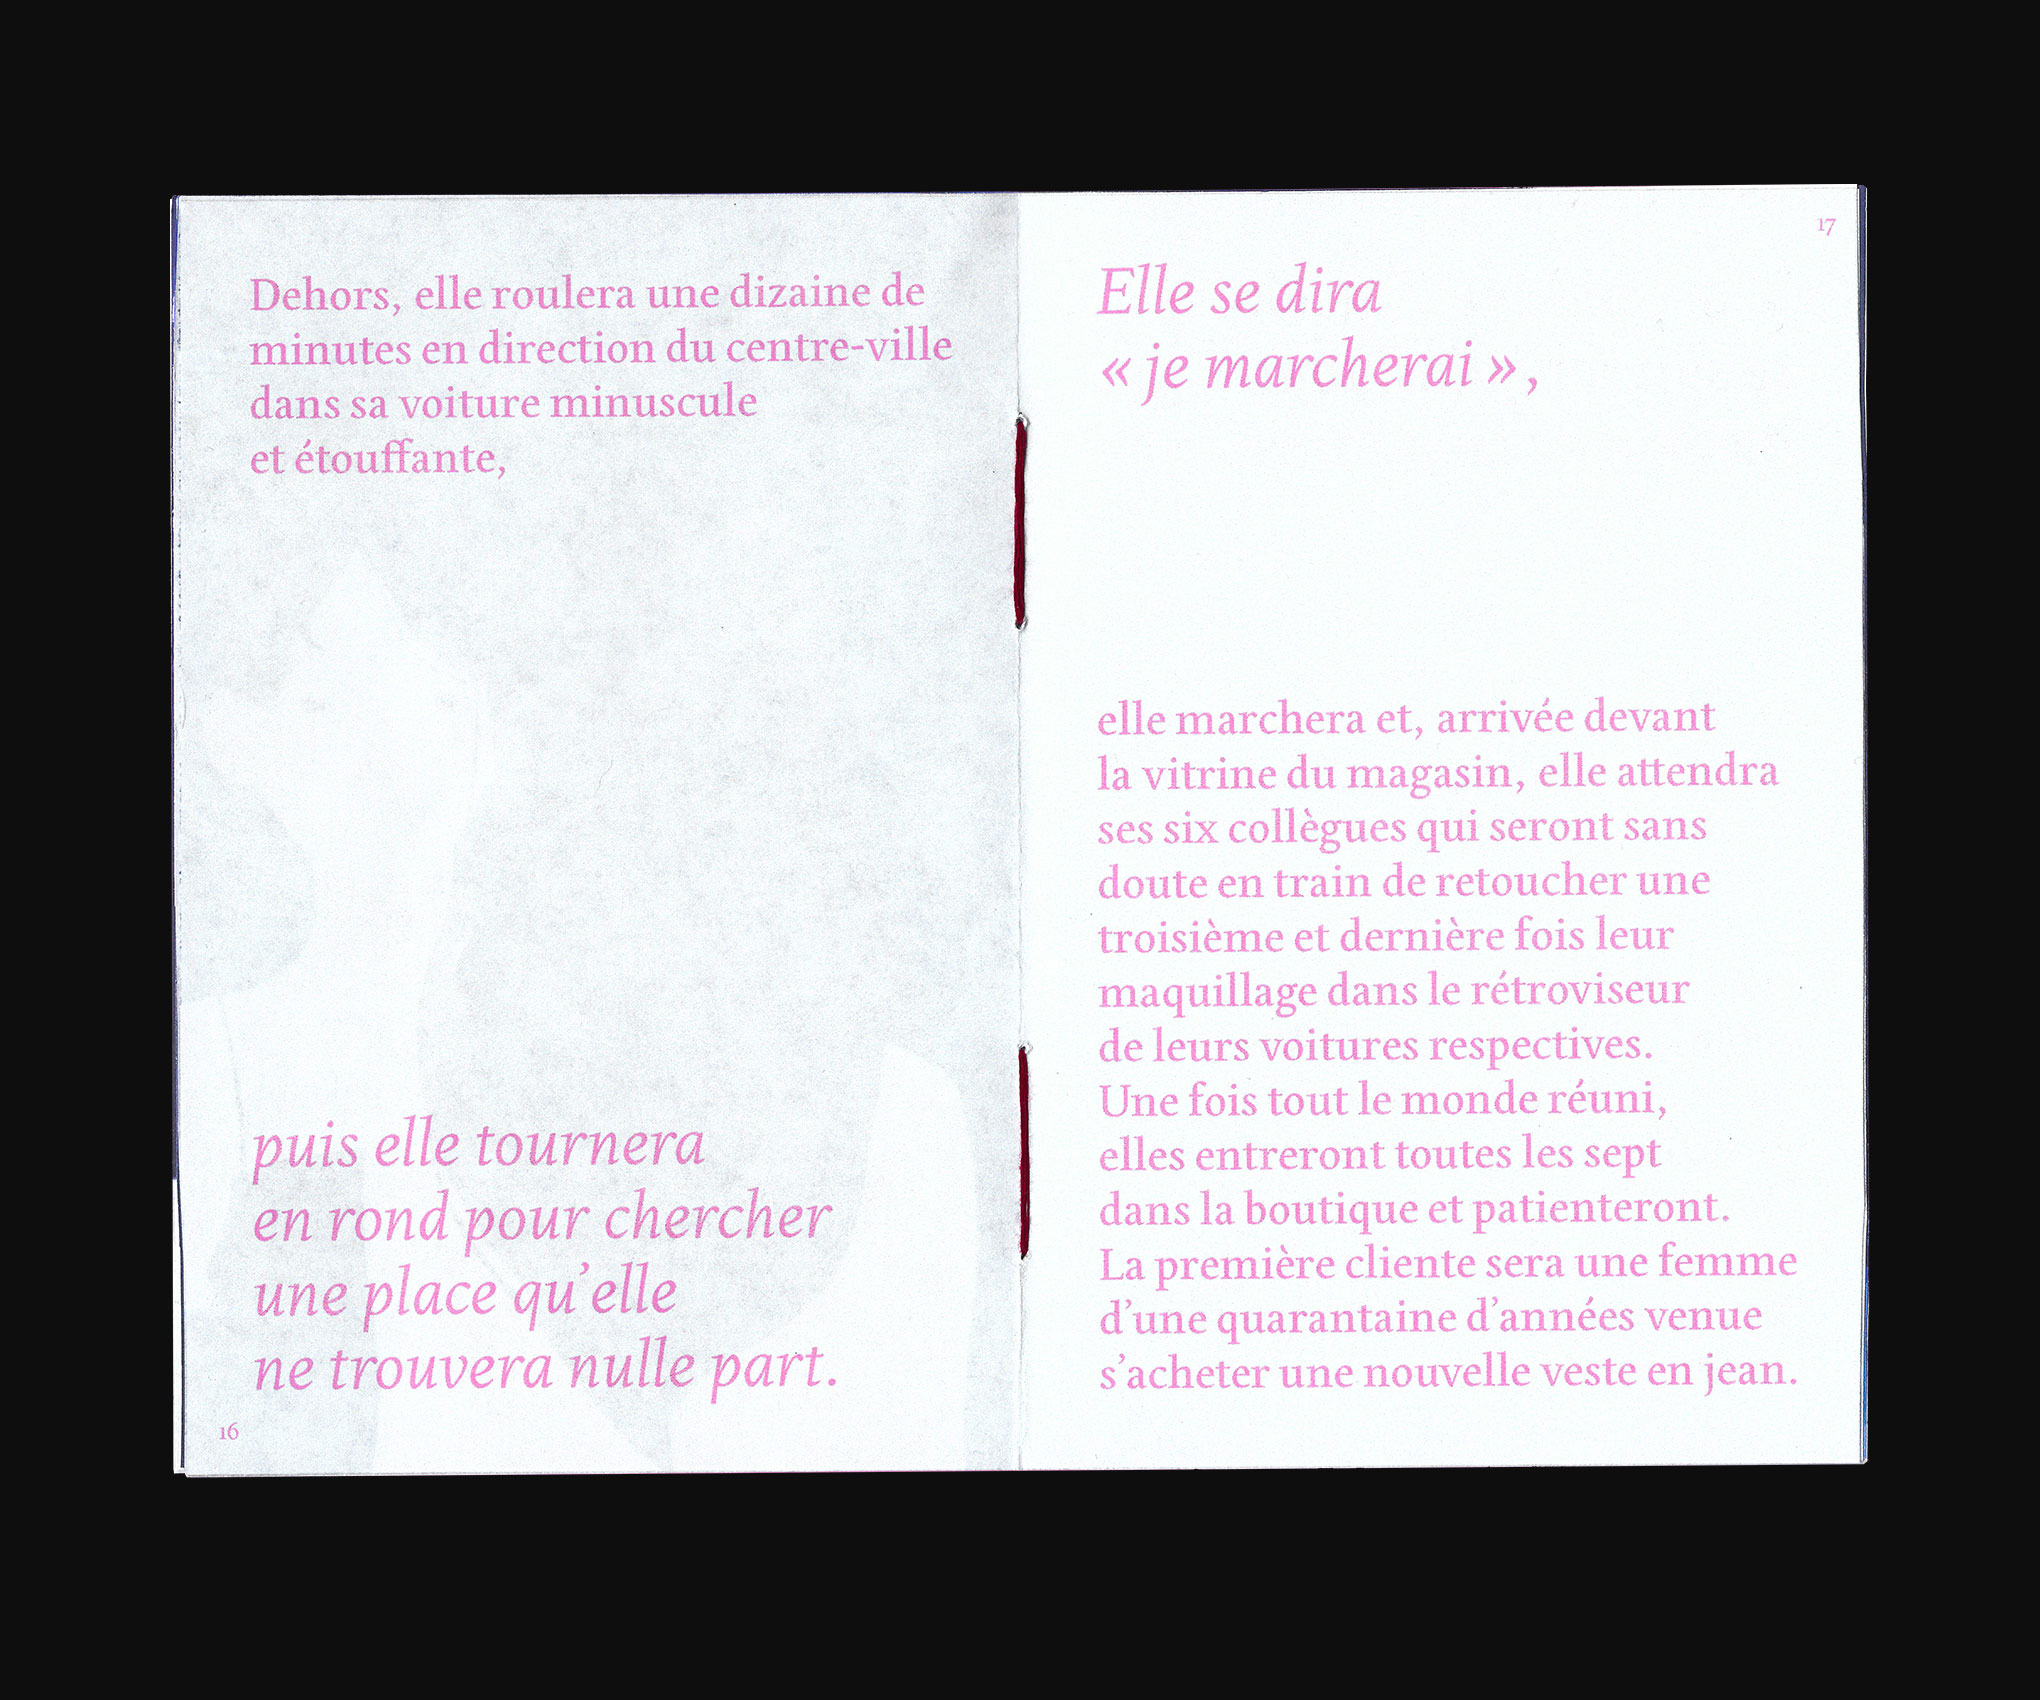 Dehors, elle roulera une dizaine de
minutes en direction du centre-ville
dans sa voiture minuscule
et étouffante,
puis elle tournera
en rond pour chercher
une place qu’elle
ne trouvera nulle part.
16
17
Elle se dira
« je marcherai »,
elle marchera et, arrivée devant
la vitrine du magasin, elle attendra
ses six collègues qui seront sans
doute en train de retoucher une
troisième et dernière fois leur
maquillage dans le rétroviseur
de leurs voitures respectives.
Une fois tout le monde réuni,
elles entreront toutes les sept
dans la boutique et patienteront.
La première cliente sera une femme
d’une quarantaine d’années venue
s’acheter une nouvelle veste en jean.